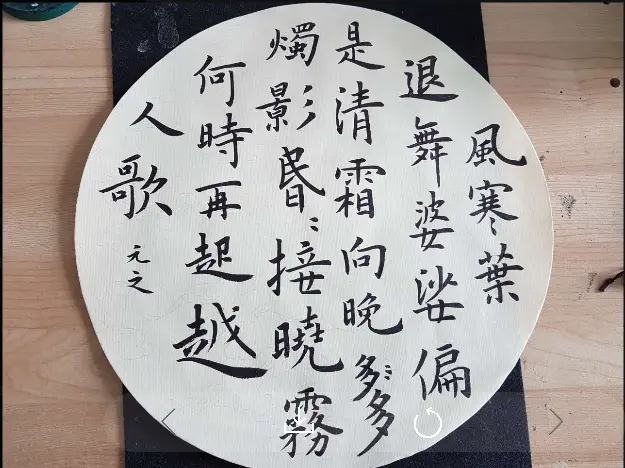 風寒葉
退舞婆娑偏
是清霜向晚多多
燭影昏〻接曉霧
何時再起越
人歌
元之